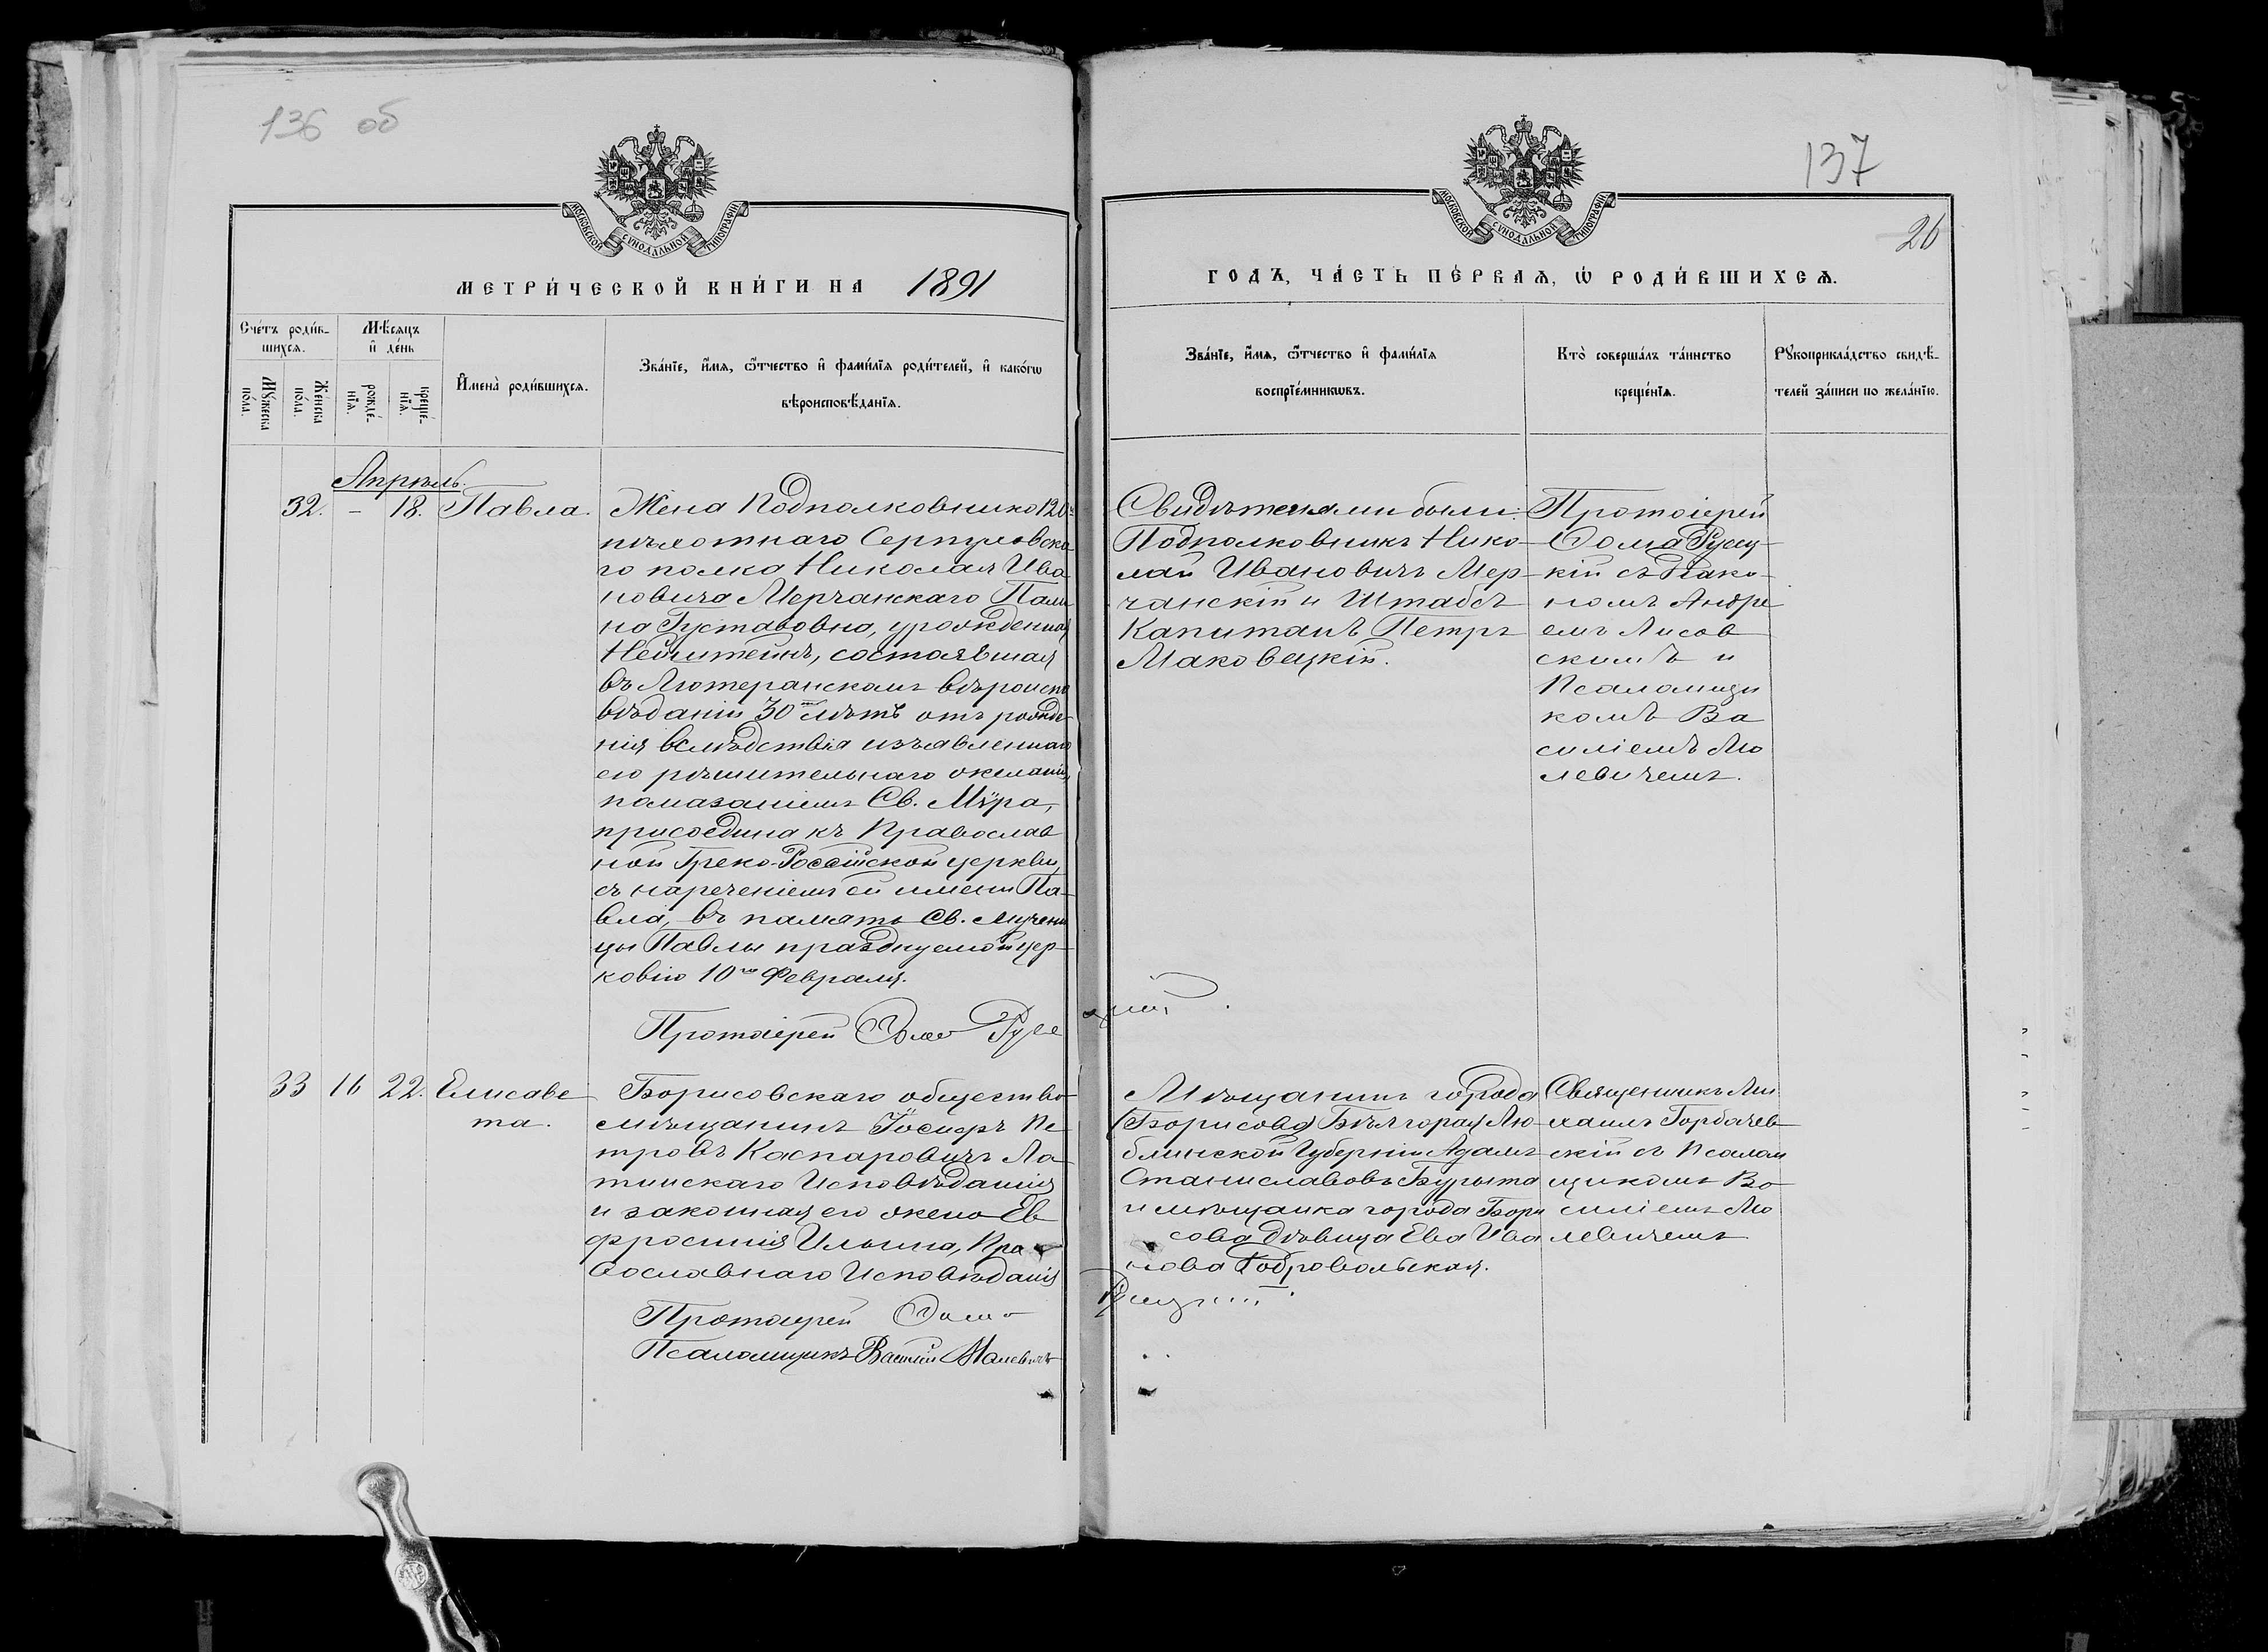 136 об
МОСКОВСКОЙ СѴНОДАЛЬНОЙ ТИПОГРАФІИ
МЕТРИ́ЧЕСКОЙ КНИ́ГИ НА 1891
Сче́тъ роди́в-
шихся.
Мѣ́сяцъ
и де́нь
Му́жеска
по́ла.
Же́нска
по́ла.
рожде́-
нїя.
креще́-
нїя.
Имена̀ роди́вшихся.
Зва́нїе, и́мя, ѻ́тчество и фами́лїя роди́телей, и како́гѡ
вѣроисповѣ́данїя.
Апрѣль.
32. – 18. Павла.
Жена Подполковника 120го
пѣхотнаго Серпуховска
го полка Николая Ива
новича Мерчанскаго Пали
на Густавовна, урожденная
состоявшая
въ Лютеранскомъ вѣроиспо
вѣданіи 30ти лѣтъ отъ рожде
нія вслѣдствіе изъявленнаго
ею рѣшительнаго желанія,
помазаніемъ Св. Мѵра,
присоедина къ Православ
ной Греко-Россійской церкви,
съ нареченіемъ ей имени Па-
вла, въ память Св. Мучени
цы Павлы празднуемой цер-
ковію 10го Февраля.
Протоіерей Ѳома Русе
цкій
33 16 22. Елисаве
та.
Борисовскаго общества
мѣщанинъ Іосифъ Пе
тровъ Каспаровичъ Ла
тинскаго Исповѣданія
и законная его жена Ев
фросинія Ильина, Пра
вославнаго Исповѣданія
Протоіерей Ѳома
Псаломщикъ Василій
137
26
МОСКОВСКОЙ СѴНОДАЛЬНОЙ ТИПОГРАФІИ
ГОДЪ, ЧА́СТЬ ПЕ́РВАЯ, Ѡ РОДИ́ВШИХСЯ.
Зва́нїе, и́мя, ѻ́тчество и фами́лїя
воспрїе́мникѡвъ.
Кто̀ соверша́лъ та́инство
креще́нїя.
Рукоприкла́дство свидѣ́-
телей за́писи по жела́нїю.
Свидѣтелями были:
Подполковникъ Нико-
лай Ивановичъ Мер-
чанскій и Штабсъ
Капитанъ Петръ
Маковецкій.
Протоіерей
Ѳома Русец-
кій съ Діако-
номъ Андре
емъ Лисов
скимъ и
Псаломщи
комъ Ва
силіемъ
левичемъ.
Мѣщанинъ города
(Борисова) Бѣлгорая Лю-
блинской Губерніи Адамъ
Станиславовъ Бурыта
и мѣщанка города Бори
сова дѣвица Ева Ива
нова Добровольская.
Русецкій
Священникъ Ми
хаилъ Горбачев
скій съ Псалом
щикомъ Ва
силіемъ
левичемъ